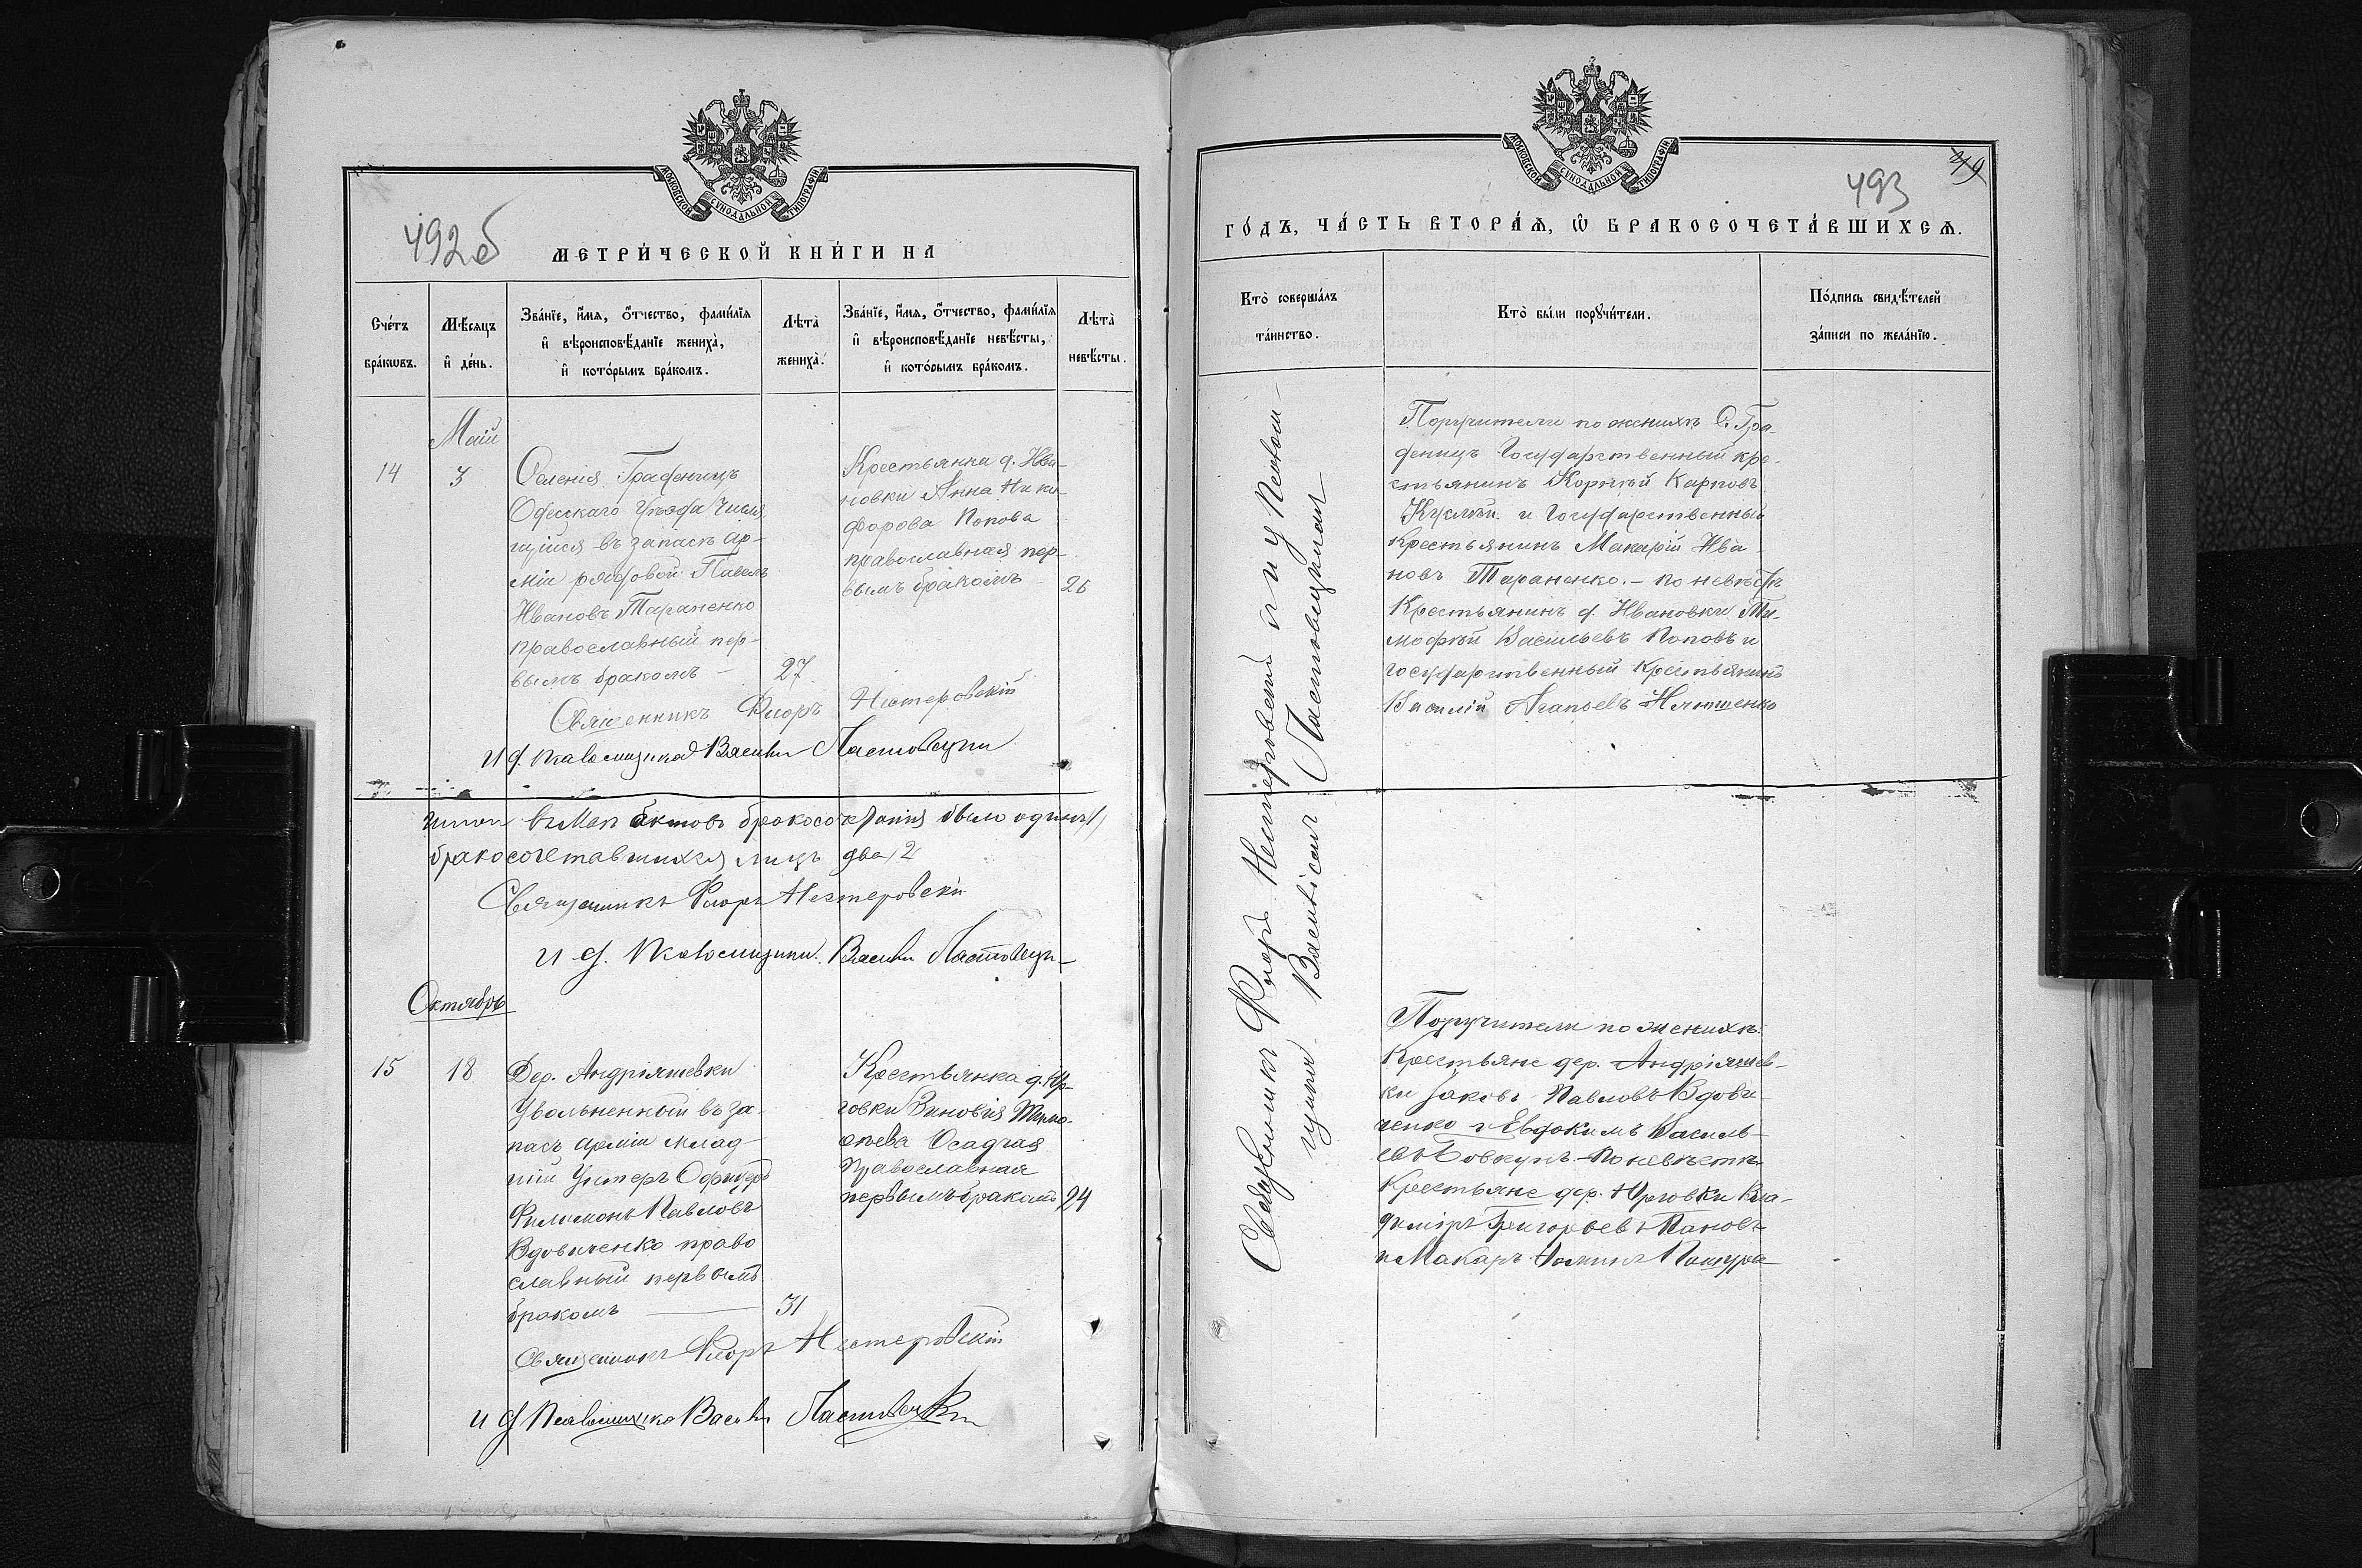 МОСКОВСКОЙ СУНОДАЛЬНОЙ ТИПОГРАФІИ
492об
МЕТРИ́ЧЕСКОЙ КНИ́ГИ НА
Сче́тъ бра́кѡвъ.
Мѣ́сяцъ и҆ де́нь.
Зва́нїе, и҆́мѧ, ѻ҆́тчество, фами́лїѧ и҆ вѣроисповѣ́данїе жениха̀, и҆ кото́рымъ бра́комъ.
Лѣта̀ жениха̀.
Зва́нїе, и҆́мѧ, ѻ҆́тчество, фами́лїѧ и҆ вѣроисповѣ́данїе невѣ́сты, и҆ кото́рымъ бра́комъ.
Лѣта̀ невѣ́сты.
Май
14
3
Селенія Графеницъ
Одесскаго Уѣзда Числя
щійся въ запасѣ ар-
міи рядовой Павелъ
Ивановъ Тараненко
православный пер-
вымъ бракомъ —
27.
Крестьянка д. Ива-
новки Анна Ники-
форова Попова
православная пер-
вымъ бракомъ —
26
Священникъ Флоръ Нестеровскій
И д. псаломщика Василій Ластовецкій
Итого въ Маѣ актовъ бракосочетанія было одинъ 1/
бракосочетавшихся лицъ два /2
Священникъ Флоръ Нестеровскій
И д. псаломщика Василій
Октябрь
15
18
Дер. Андріяшевки
Уволенный въ за-
пасъ арміи млад-
шій Унтеръ Офицеръ
Филимонъ Павловъ
Вдовиченко право
славный первымъ
бракомъ
31
Крестьянка д. Юр-
говки Зиновія Тимо-
ѳеева Осадчая
Православная
первымъ бракомъ
24
Священникъ Флоръ Нестеровскій
И д Псаломщика Василій
МОСКОВСКОЙ СУНОДАЛЬНОЙ ТИПОГРАФІИ
493
49
ГО́ДЪ, ЧА́СТЬ ВТОРА́Ѧ, Ѡ҆ БРАКОСОЧЕТА́ВШИХСѦ.
Кто̀ соверша́лъ та́инство.
Кто̀ бы́ли порꙋчи́тели.
По́дпись свидѣ́телей за́писи по жела́нїю.
Священникъ Флоръ Нестеровскій и И д Псалом-
щика Василій Ластовецкій
Поручители по женихѣ С. Гра-
феницъ Государственный кре-
стьянинъ Корнѣй Карповъ
и Государственный
Крестьянинъ Макарій Ива
новъ Тараненко. – по невѣстѣ
Крестьянинъ д. Ивановки Ти-
моѳей Васильевъ Поповъ и
государственный крестьянинъ
Василій Агапіевъ Илюшенко
Поручители по женихѣ
Крестьяне дер. Андріяшев-
ки Іаковъ Павловъ Вдови-
ченко и Евдокимъ Василь-
евъ Бовкунъ – По невѣстѣ
Крестьяне дер. Юрговки Вла-
диміръ Григорьевъ Пановъ
и Макаръ